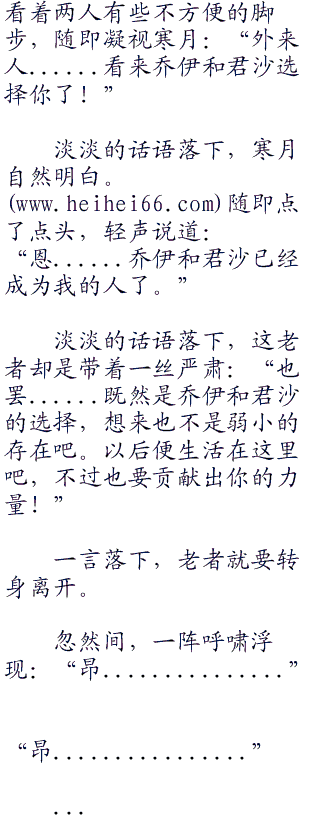 看着两人有些不方便的脚
步，随即凝视寒月：“外来
人......看来乔伊和君沙选
择你了！”
淡淡的话语落下，寒月
自然明白。
(www.heihei66.com)随即点
了点头，轻声说道：
“恩......乔伊和君沙已经
成为我的人了。”
淡淡的话语落下，这老
者却是带着一丝严肃：“也
罢......既然是乔伊和君沙
的选择，想来也不是弱小的
存在吧。以后便生活在这里
吧，不过也要贡献出你的力
量！”
一言落下，老者就要转
身离开。
忽然间，一阵呼啸浮
现：“昂...............”
“昂................”
...